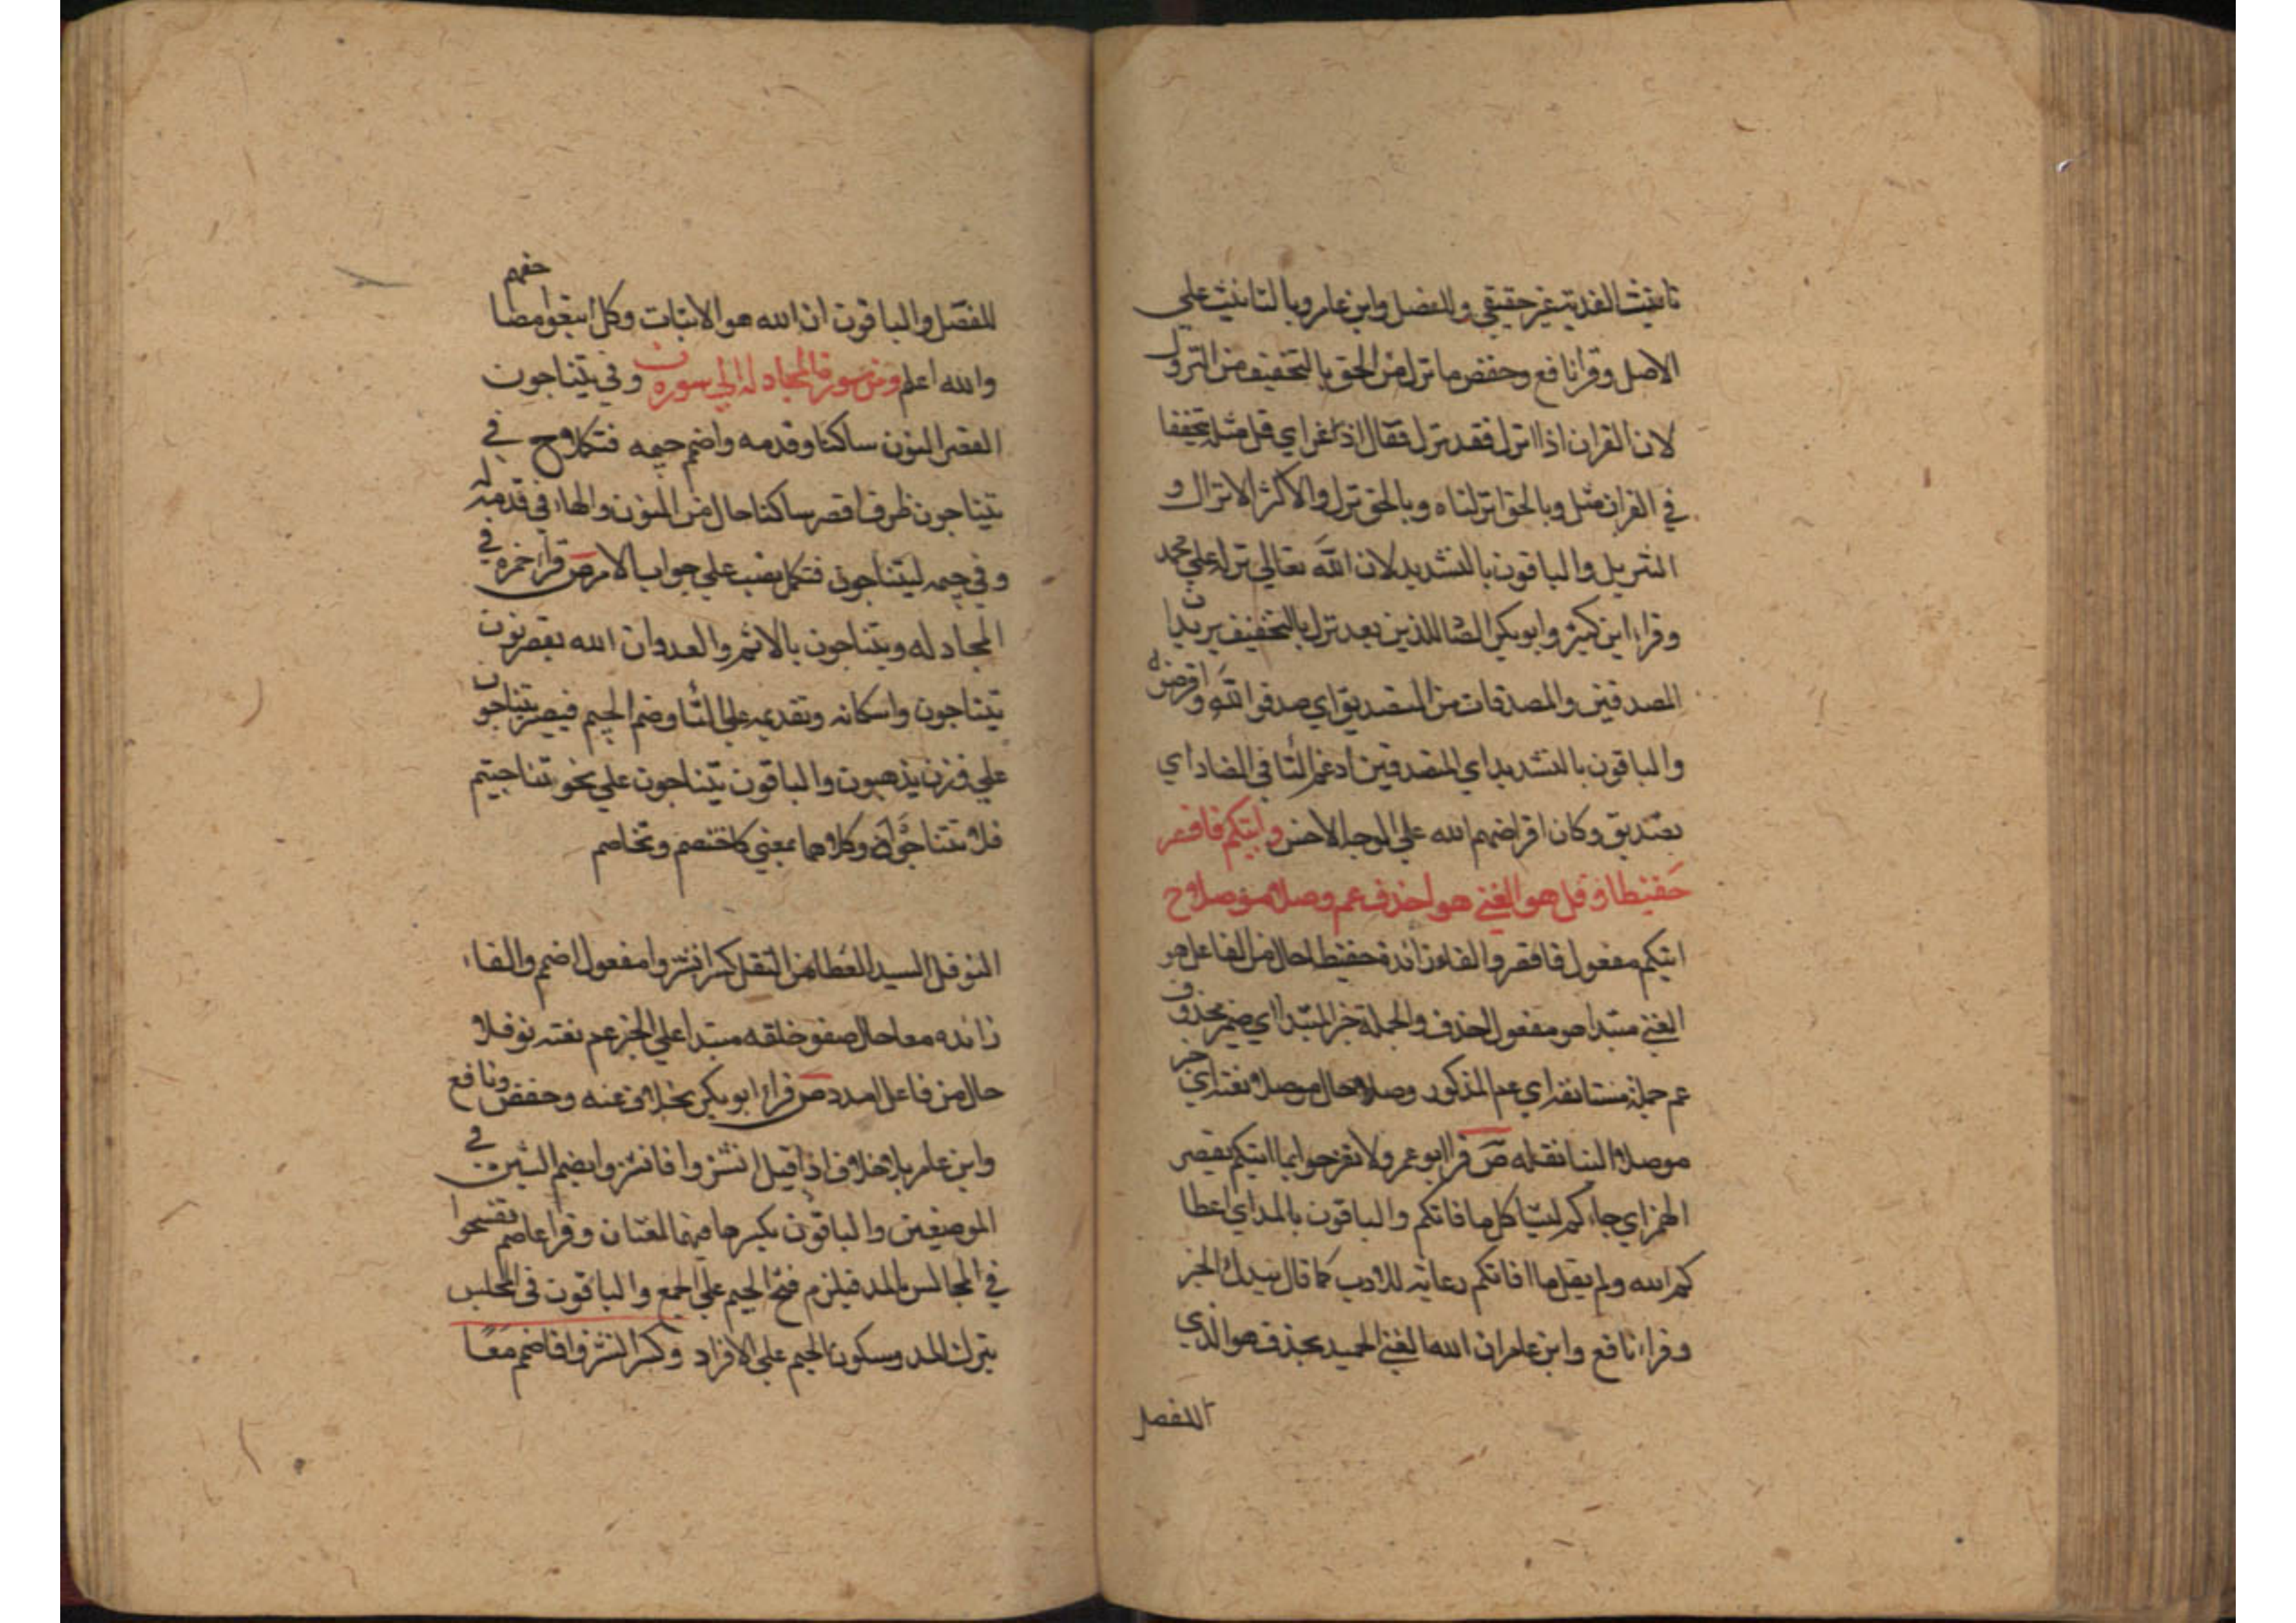 تانيث الفدية غير حقيقي وللفصل وابن عامر وبالتانيث علي
الاصل وقرا نافع وحفص ما نزل من الحق بالتخفيف من النزول
لان القران اذا انزل فقد نزل فقال اذ اي قل مثله تخفيفا
في القران مثل وبالحق انزلناه وبالحق نزل والاكثر الانزال و
التنزيل والباقون بالتشديد لان الله تعالي نزله علي محمد
وقراء ابن كثير وابو بكر الصاد اللذين بعد نزل بالتخفيف يريدان
المصدقين والمصدقات من التصديق اي صدقوا الله واقرضوه
والباقون بالتشديد اي المتصدقين ادغم التا في الصاد اي
تصديق وكان اقراضهم الله علي الوجه الاحسن واتيكم فاقصر
حفيظا وقل هو الغني هو احذف عم وصلا موصلا ح
اتيكم مفعول فاقصر والفاء زائدة حفيظا حال من الفاعل هو
الغني مبتدا هو مفعول احذف والجملة خبر المبتدا اي ضمير محذوف
عم جملة مستانفة اي عم المذكور وصلا حال موصلا نعته اي خبر
موصلا الينا نقله ص قرا ابو عمرو ولا تفرحوا بما اتيكم بقصر
الهمز اي جاءكم ليشاكل ما فاتكم والباقون بالمد اي اعطا
كم الله ولم يقل ما افاتكم رعاية للادب كما قال بيدك الخير
وقراء نافع وابن عامر ان الله الغني الحميد بحذف هو الذي
للفصل
للفصل والباقون ان الله هو الاثبات وكل اتبعوا
والله اعلم ومن سورة المجادلة الي سورة ن وفي يتناجون
اقصر النون ساكنا وقدمه واضمم جيمه فتكملا ح في
يتناجون ظرف اقصر ساكنا حال من النون والهاء في قدمه له
وفي جيمه ليتناجون فتكملا نصب علي جواب الامر ص قراء حمزة في
المجادلة ويتناجون بالاثم والعدوان الله بقصر نون
يتناجون واسكانه وتقديمه علي التا وضم الجيم فيصير ينتجون
علي وزن يذهبون والباقون يتناجون علي نحو تناجيتم
فلا تتناجوا وكلاهما بمعني كاختصم وتخاصم
النوفل السيد المعطا من النفل كسر انشزوا مفعول اضمم والفاء
زائدة معا حال صفو خلفه مبتدا علي الخبر عم نعته نوفلا
حال من فاعل امدد ص قراء ابو بكر بخلاف عنه وحفص ونافع
وابن عامر بلا خلاف اذا قيل انشزوا فانشزوا بضم الشين في
الموضعين والباقون بكسرها فيهما لغتان وقرا عاصم تفسحوا
في المجالس بالمد فيلزم فتح الجيم علي الجمع والباقون في المجلس
بترك المد وسكون الجيم علي الافراد وكسر انشزوا فاضمم معا